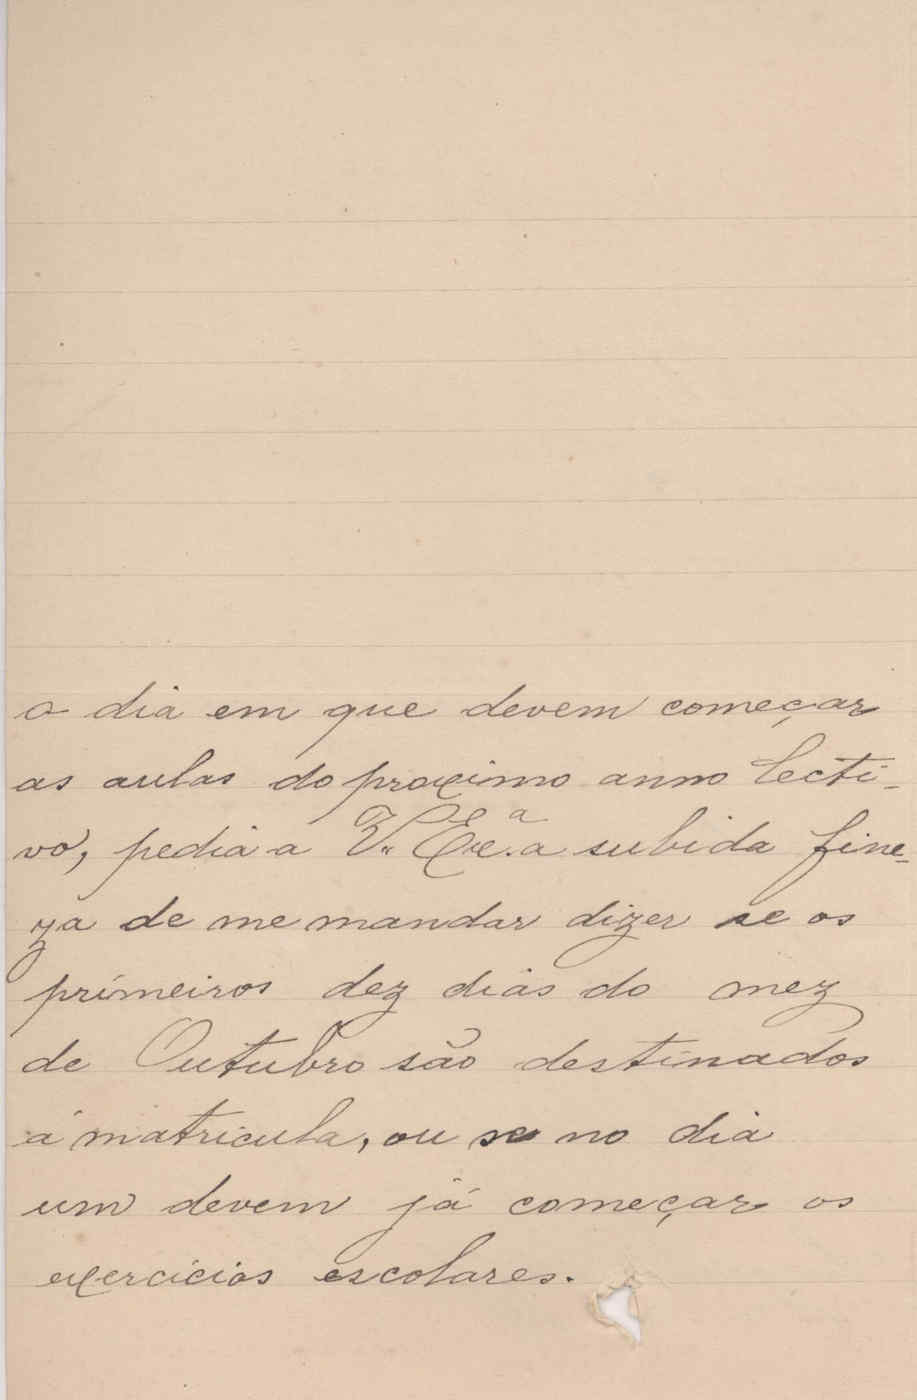 o dia em que devem começar
as aulas do proximo anno lecti-
vo, pedia a V. Ex.ª a subida fine-
za de me mandar dizer se os
primeiros dez dias do mez
de Outubro são destinados
á matricula, ou se no dia
um devem já começar os
exercicios escolares.